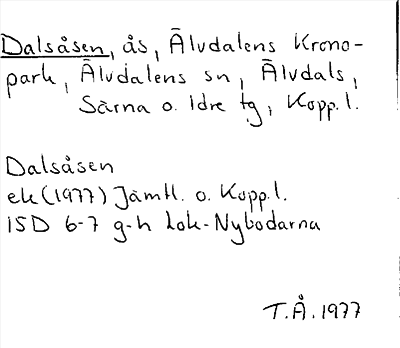 Dalsåsen, ås, Älvdalens Krono-
park, Älvdalens sn, Älvdals,
Särna o. Idre tg, Kopp.l.
Dalsåsen
ek (1977) Jämtl. o. Kopp.l.
15D 6-7 g-h lok-Nybodarna
T.Å. 1977